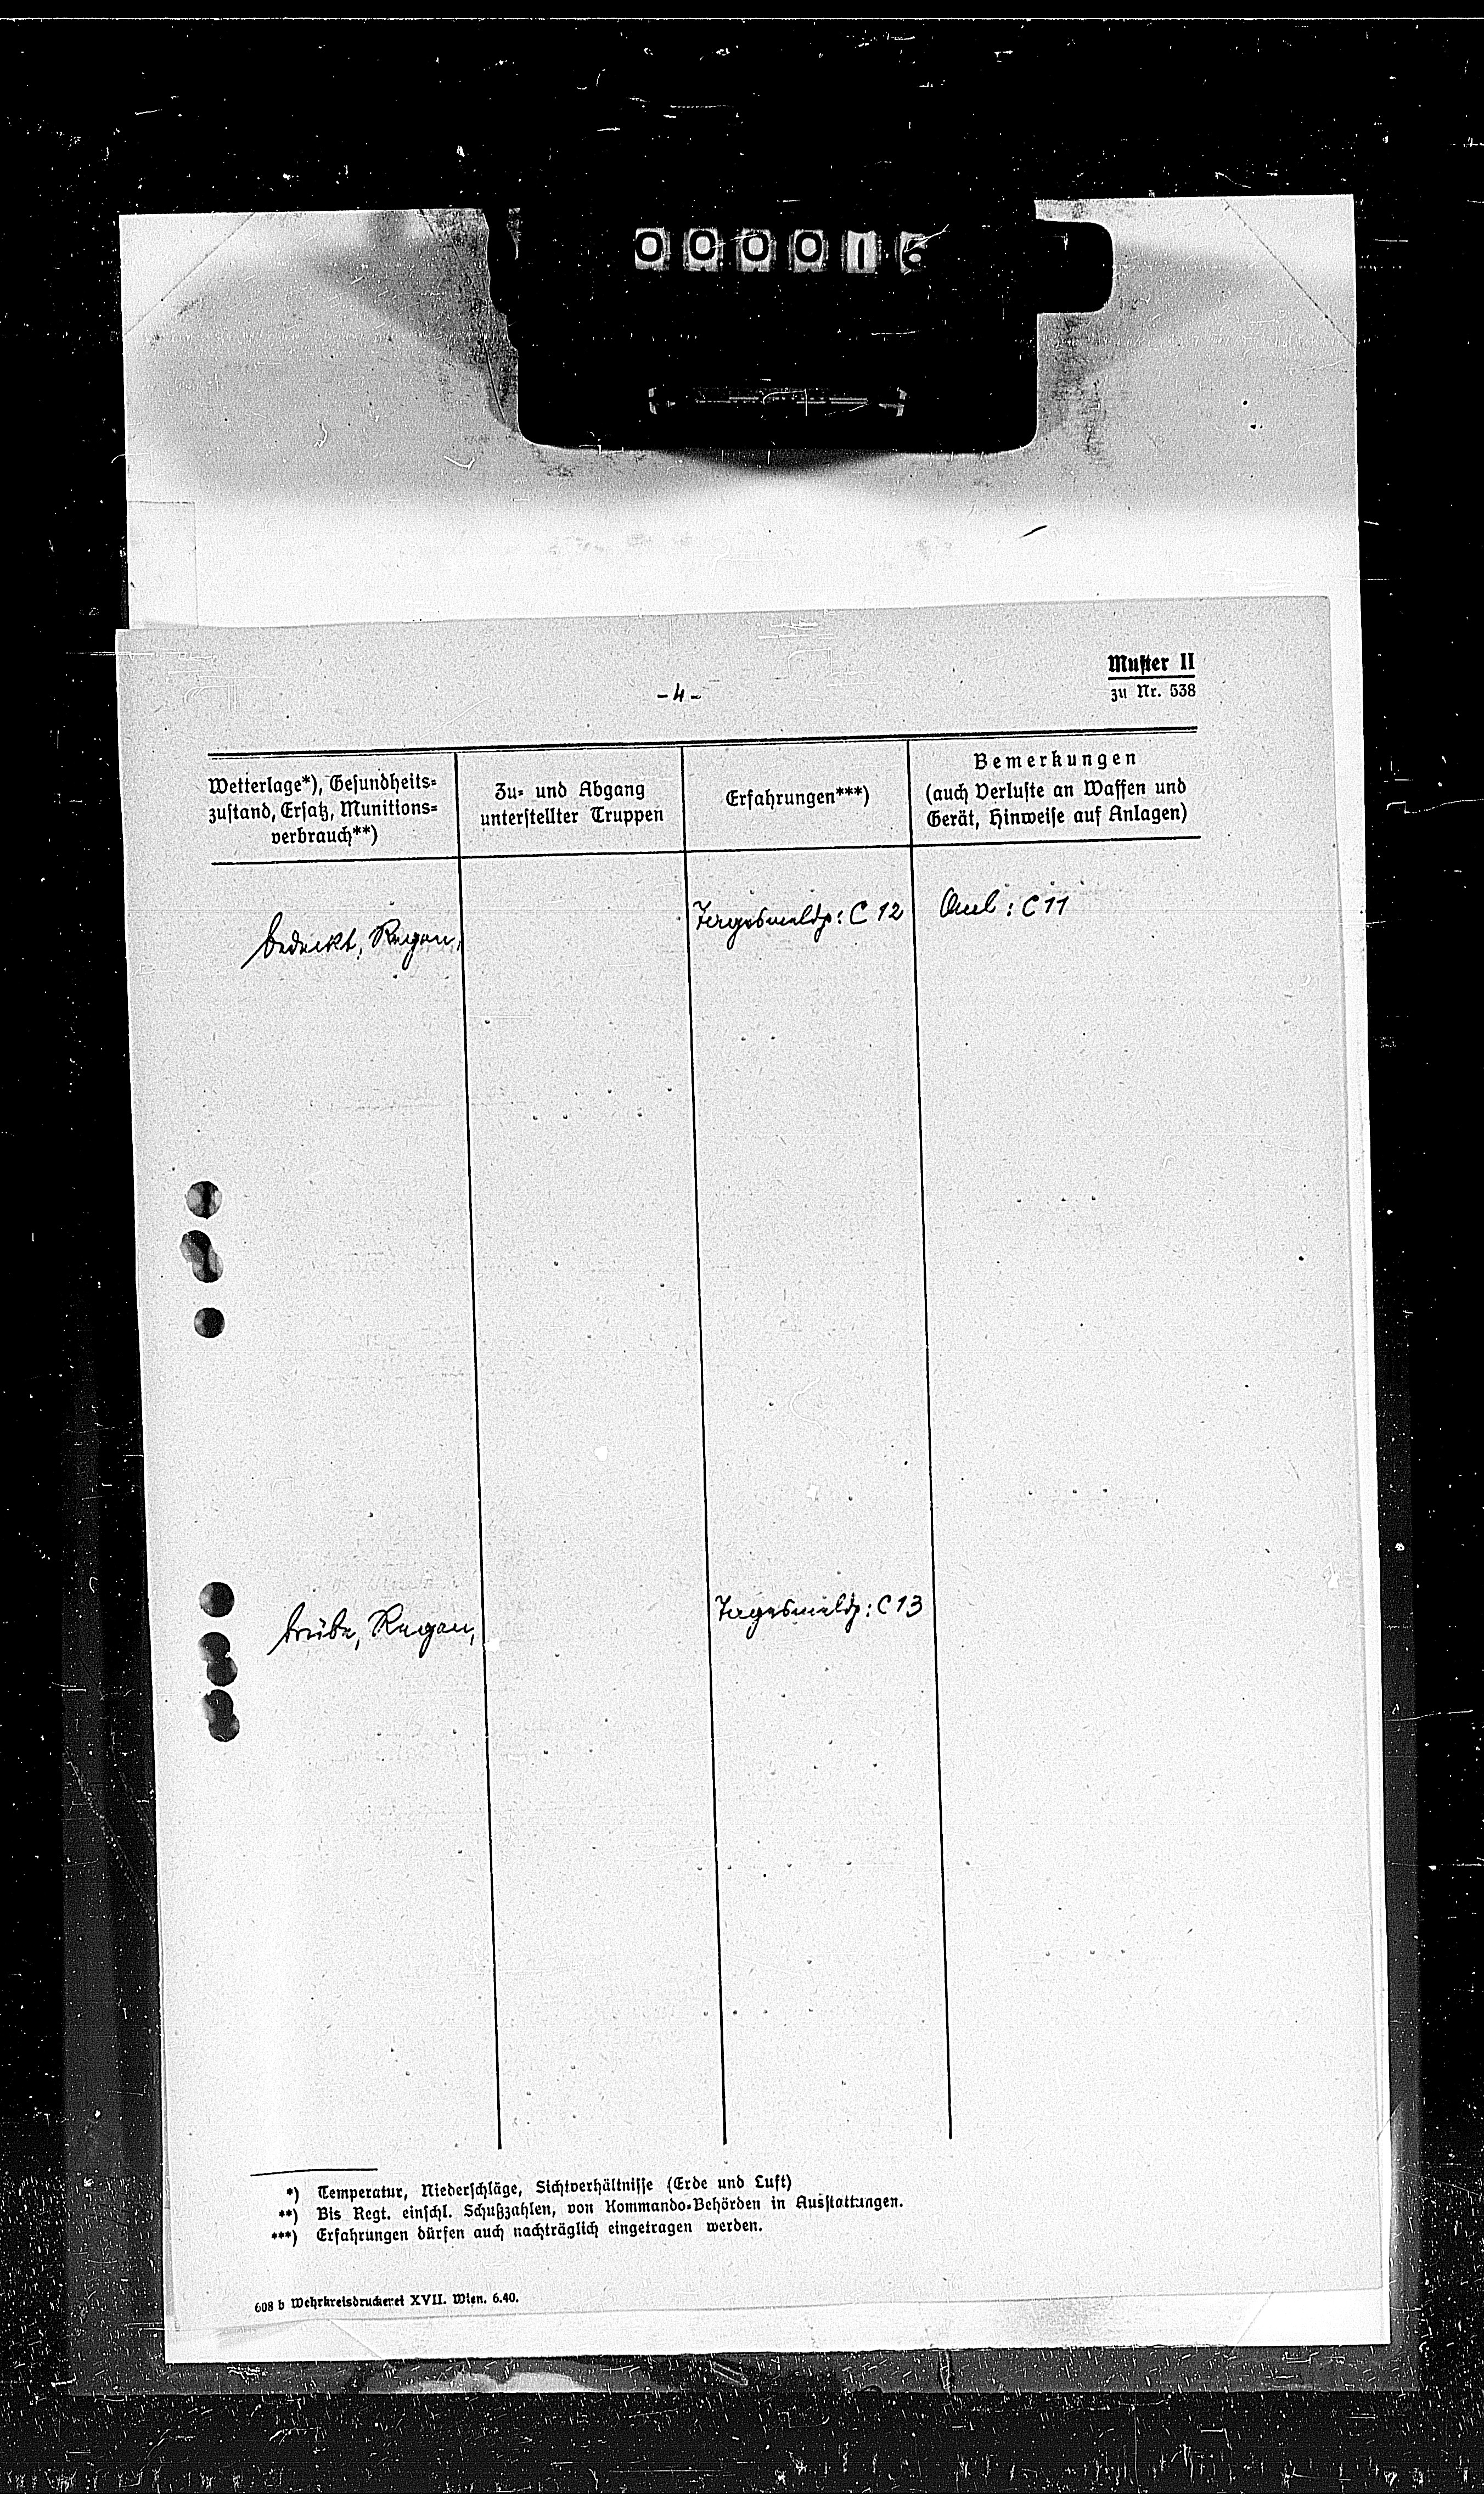 Muster II
zu Nr. 538
- 4 -
Wetterlage*), Gesundheits-
zustand, Ersatz, Munitions-
verbrauch**)
Zu- und Abgang
unterstellter Truppen
Erfahrungen***)
Bemerkungen
(auch Verluste an Waffen und
Gerät, Hinweise auf Anlagen)
bedeckt, Regen,
Tagesmeldg: C 12
Anl: C 11
trübe, Regen,
Tagesmeldg: C 13
*) Temperatur, Niederschläge, Sichtverhältnisse (Erde und Luft)
**) Bis Regt. einschl. Schußzahlen, von Kommando-Behörden in Ausstattungen.
***) Erfahrungen dürfen auch nachträglich eingetragen werden.
608 b Wehrkreisdruckerei XVII. Wien. 6.40.